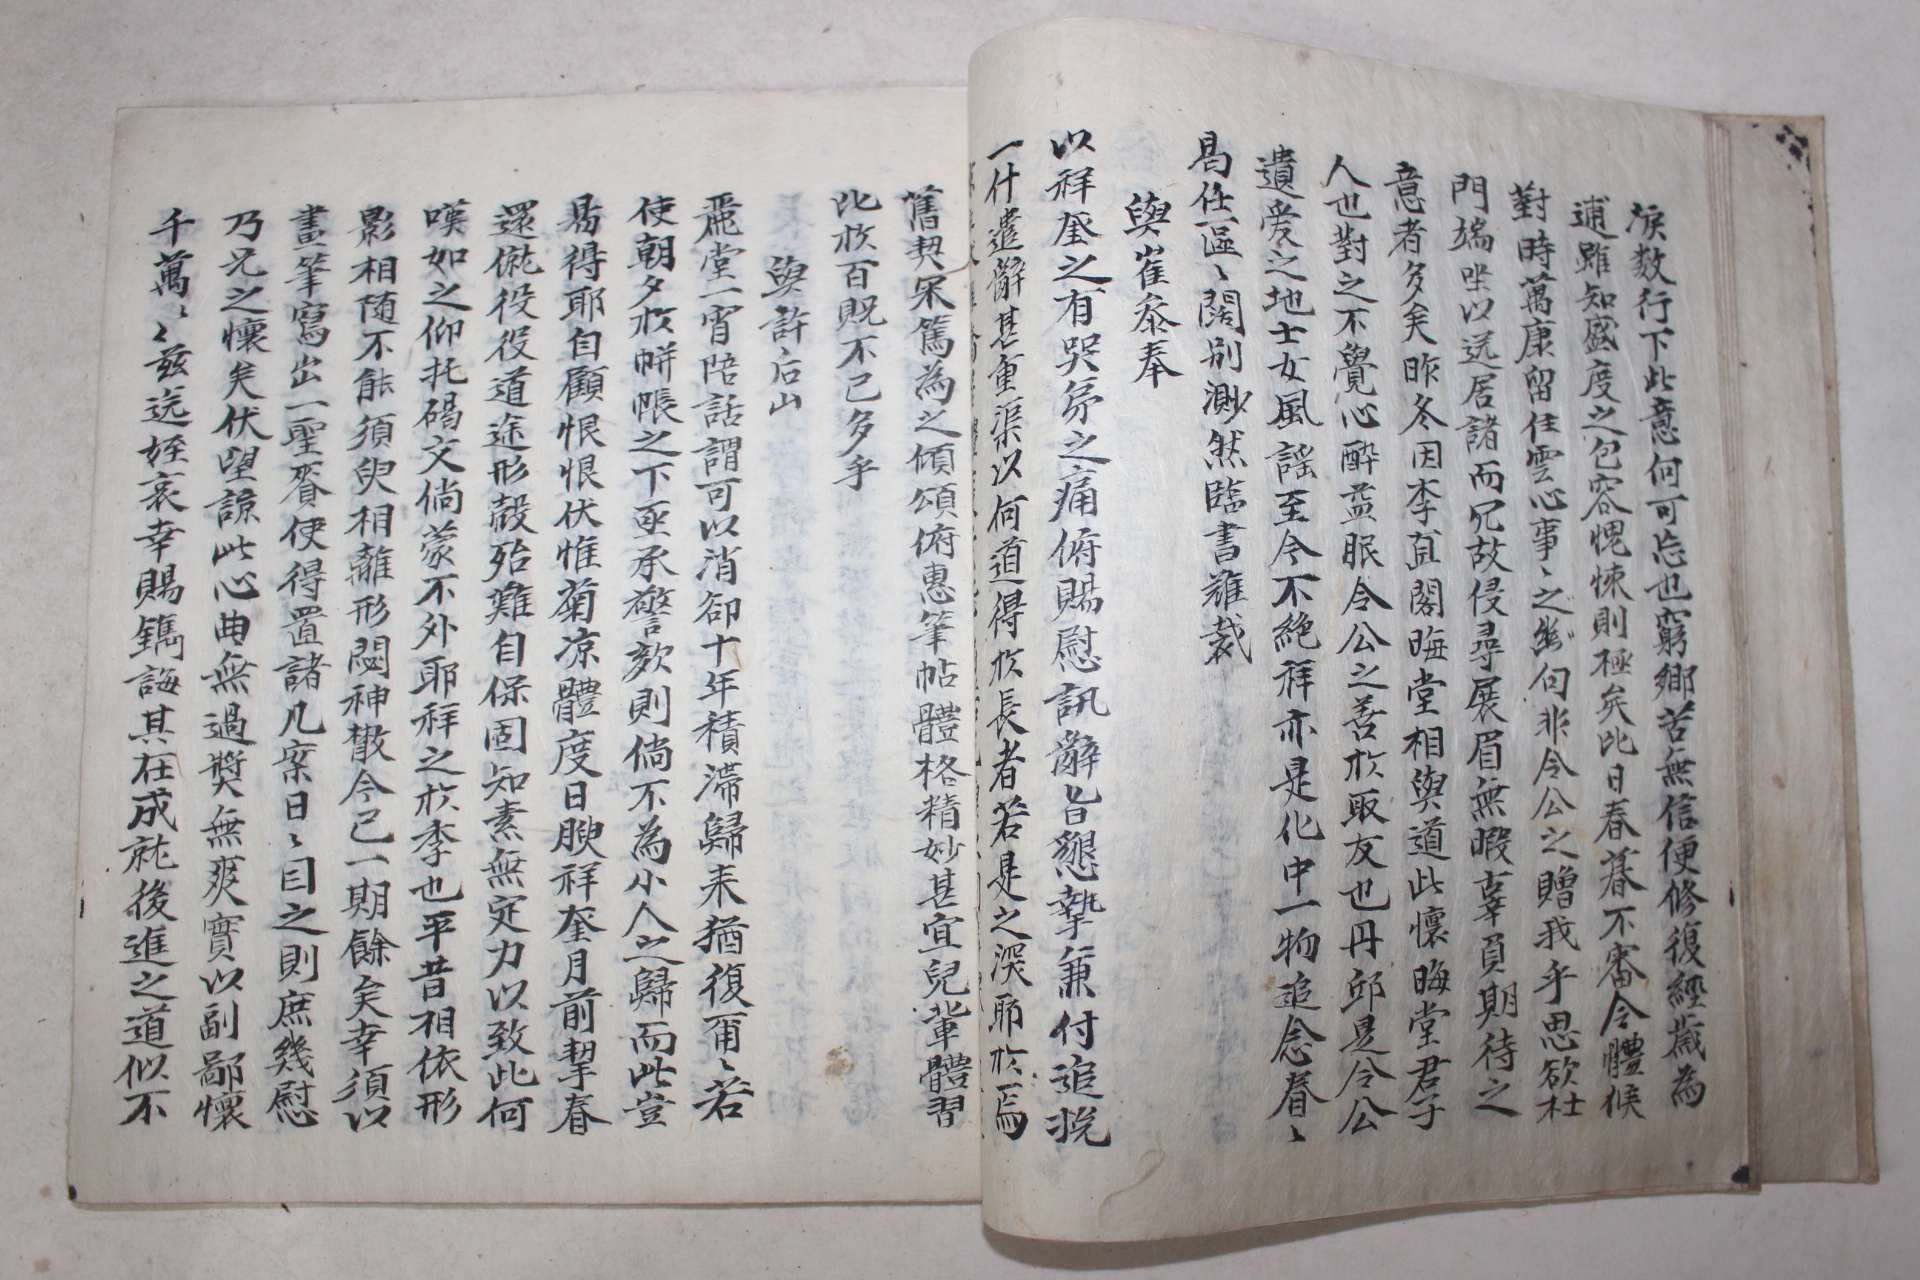 淚数行下此意何可忘也窮鄉苦無信便修復經歲為
逋雖知盛度之包容愧悚則極矣比日春暮不審令體候
對時萬康留住雲心事〻之幽句非令公之贈我乎思欲杜
門端坐以送居諸而冗故侵尋展眉無暇辜負期待之
意者多矣昨冬因李直閣晦堂相與道此懷晦堂君子
人也對之不覺心醉益服令公之善扵取友也丹邱是令公
遺爱之地士女風謡至今不絶拜亦是化中一物追念眷〻
曷任區〻闊别渺然臨書難裁
與崔叅奉
以拜奎之有哭㐧之痛俯賜慰訊辭旨懇摯兼付追挽
一什遣辭甚重渠以何道得扵長者若是之深耶扵焉
舊契宋篤為之傾頌俯惠筆帖體格精妙甚宜兒輩體習
比扵百貺不已多乎
與許后山
麗堂一宵陪話謂可以消卻十年積滯歸来猶復爾〻若
使朝夕扵帡帳之下亟承警欬則倘不為小人之歸而此豈
易得耶自顧恨恨伏惟菊凉體度日腴祥奎月前挈眷
還僦役役道途形殼殆難自保固知素無定力以致此何
嘆如之仰托碣文倘蒙不外耶祥之扵李也平昔相依形
影相随不能須臾相離形閟神檄今已一期餘矣幸須以
畫筆寫出一聖賚使得置諸几案日〻目之則庶幾慰
乃兄之懷矣伏望諒此心曲無過奬無爽實以副鄙懷
千萬〻兹送姪哀幸賜鐫誨其在成就後進之道似不